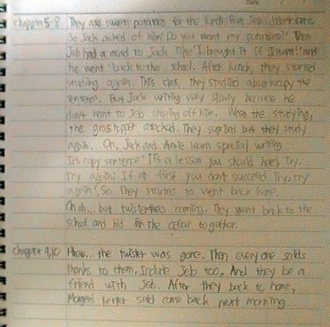 chapter 5-8 They are sweet potatoes for the lunch. But Jeb didn't eat.
So Jack asked of him "Do you want my potatoes?" Then
Jeb had a mad to Jack like "I brought it if I want!" and
he went back to the school. After lunch, they started
studying again. This class, they studied about copy the
sentence. But Jack writing very slowly because he
don't want to Jeb showing off him. When the studying,
the grasshopper attacked. They suprised but they study
again. Oh, Jack and Annie learn special writing
It's copy sentence! It's a lesson you should heed, Try,
try again; If at first you don't succeed, Try, try
again! So They started to went back home.
Oh oh... but twister was coming. They went back to the
school and hid for the cellar together.
Chapter 9,10 Hmm... the twister was gone. Then every one said
thanks to them, include Jeb too, And they be a
friend with Jeb. After they back to home,
Morgan's letter said come back next morning.